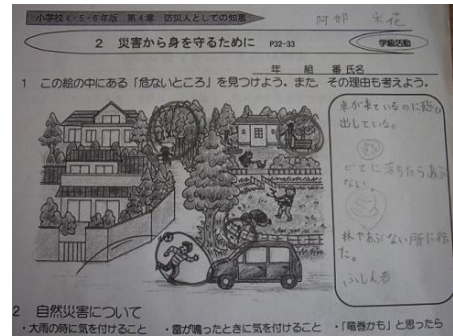 小学校4・5・6年版 第4章 防災人としての知恵
阿部
2 災害から身を守るために P32-33
学級活動
年 組 番 氏名
1 この絵の中にある「危ないところ」を見つけよう。また、その理由も考えよう。
車が来ているのに飛び
出している。
どてに落ちたらあぶ
ない。
林やあぶない所に行っ
た。
ふしん者
2 自然災害について
・大雨の時に気を付けること ・雷が鳴ったときに気を付けること ・「竜巻かも」と思ったら